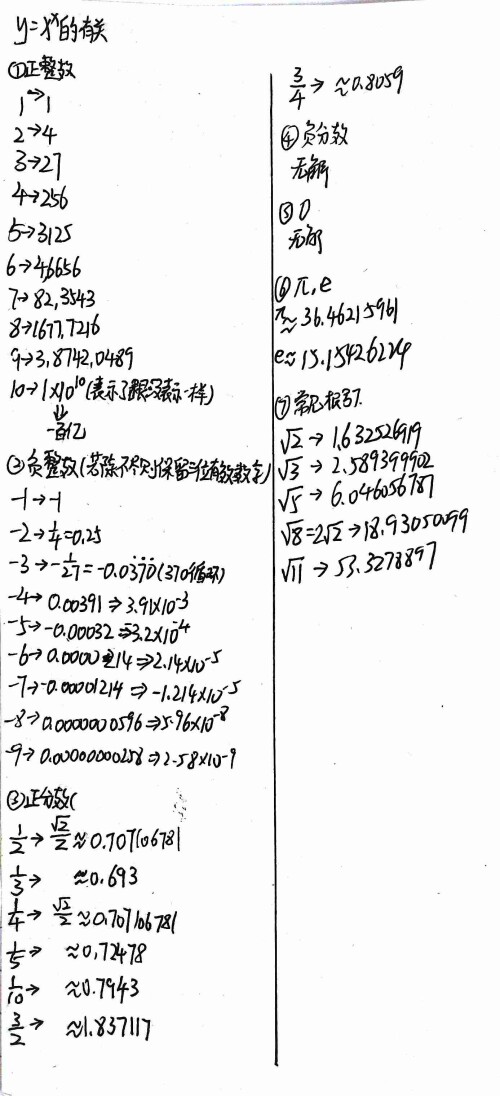 y=xˣ的有关
①正整数
1→1
2→4
3→27
4→256
5→3125
6→4,6656
7→82,3543
8→1677,7216
9→3,8742,0489
10→1×10¹⁰(表示了跟没表示一样)
⇓
一百亿
②负整数(若除不尽则保留三位有效数字)
-1→-1
-2→1/4=0.25
-3→-1/27=-0.0370(370循环)
-4→0.00391⇒3.91×10⁻³
-5→-0.00032⇒3.2×10⁻⁴
-6→0.0000214⇒2.14×10⁻⁵
-7→-0.00001214⇒-1.214×10⁻⁵
-8→0.0000000596⇒5.96×10⁻⁸
-9→0.00000000258⇒2.58×10⁻⁹
③正分数(
1/2→√2/2≈0.707106781
1/3→ ≈0.693
1/4→√2/2≈0.707106781
1/5→ ≈0.72478
1/10→ ≈0.7943
3/2→ ≈1.837117
3/4→≈0.8059
④负分数
无解
⑤0
无解
⑥π,e
π≈36.46215961
e≈15.15426224
⑦常见根号
√2→1.632526919
√3→2.589399902
√5→6.046056787
√8=2√2→18.93050099
√11→53.3278897